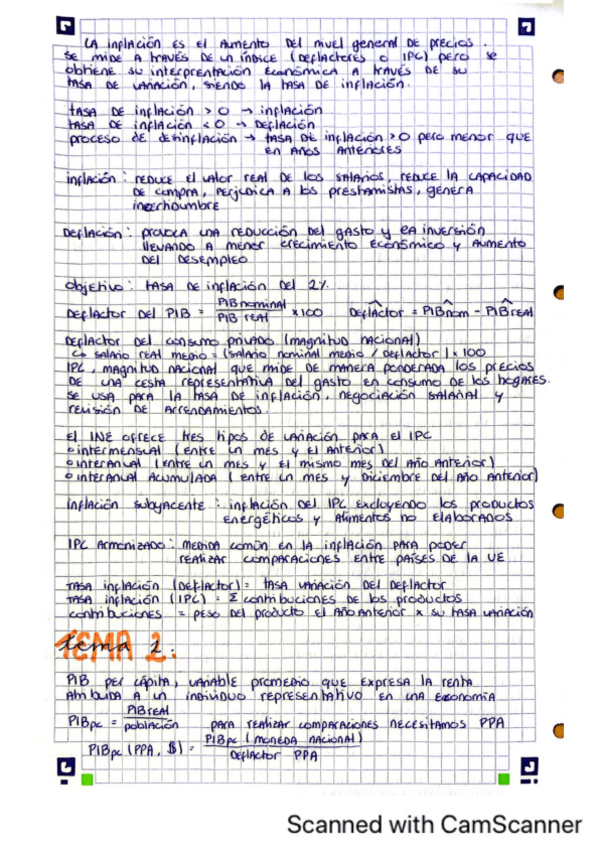 LA inflación es el Aumento Del nivel general De precios.
Se mide A través De un índice (Deflactores o IPC) pero se
obtiene su interpretación Económica A través de su
tasa de variación, siendo la tasa de inflación.
tasa de inflación > 0 → inflación
tasa de inflación < 0 → Deflación
proceso de desinflación → tasa de inflación > 0 pero menor que
en Años Anteriores
inflación: reduce el valor real de los salarios, reduce la capacidad
de compra, perjudica a los prestamistas, genera
incertidumbre
Deflación: provoca una reducción del gasto y ea inversión
llevando a menor crecimiento económico y aumento
del desempleo
Objetivo: tasa de inflación del 2%.
Deflactor del PIB = PIB nominal / PIB real x 100 Deflactor^ = PIBnom^ - PIBreal^
Deflactor del consumo privado (magnitud nacional)
↳ salario real medio = (salario nominal medio / Deflactor) x 100
IPC, magnitud nacional que mide de manera ponderada los precios
de una cesta representativa del gasto en consumo de los hogares.
se usa para la tasa de inflación, negociación salarial y
revisión de arrendamientos.
El INE ofrece tres tipos de variación para el IPC
• intermensual (entre un mes y el anterior)
• interanual (entre un mes y el mismo mes del año anterior)
• interanual Acumulada (entre un mes y diciembre del año anterior)
inflación subyacente: inflación del IPC excluyendo los productos
energéticos y alimentos no elaborados
IPC Armonizado: medida común en la inflación para poder
realizar comparaciones entre países de la UE
tasa inflación (Deflactor) = tasa variación del deflactor
tasa inflación (IPC) = Σ contribuciones de los productos
contribuciones = peso del producto el año anterior x su tasa variación
TEMA 2.
tema 2.
PIB per cápita, variable promedio que expresa la renta
Atribuida a un individuo representativo en una economía
PIBpc = PIB real / población para realizar comparaciones necesitamos PPA
PIBpc (PPA, $) = PIBpc (moneda nacional) / Deflactor PPA
Scanned with CamScanner